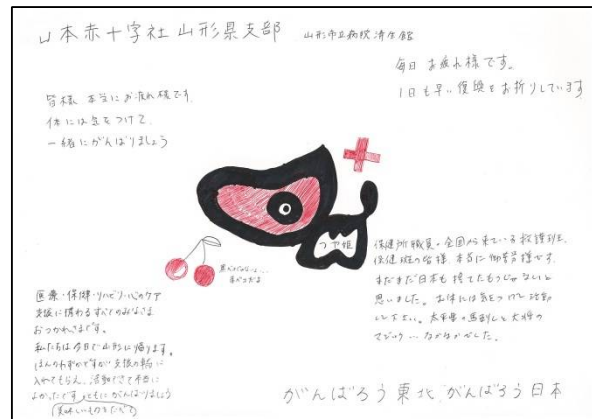 日本赤十字社山形県支部 山形市立病院済生館
毎日お疲れ様です。
1日も早い復興をお祈りしています
皆様 本当にお疲れ様です
体には気をつけて
一緒にがんばりましょう
つや姫
保健所職員、全国から来ている救護班、
保健班の皆様、本当に御苦労様です。
まだまだ日本も捨てたもんじゃないと
思いました。お体には気をつけて活動
して下さい。
医療・保健・リハビリ・心のケア
支援に携わるすべてのみなさま
おつかれさまです。
私たちは今日で山形に帰ります。
ほんのわずかですが支援の輪に
入れてもらえ、活動できて本当に
よかったです。ともにがんばりましょう
がんばろう東北 がんばろう日本